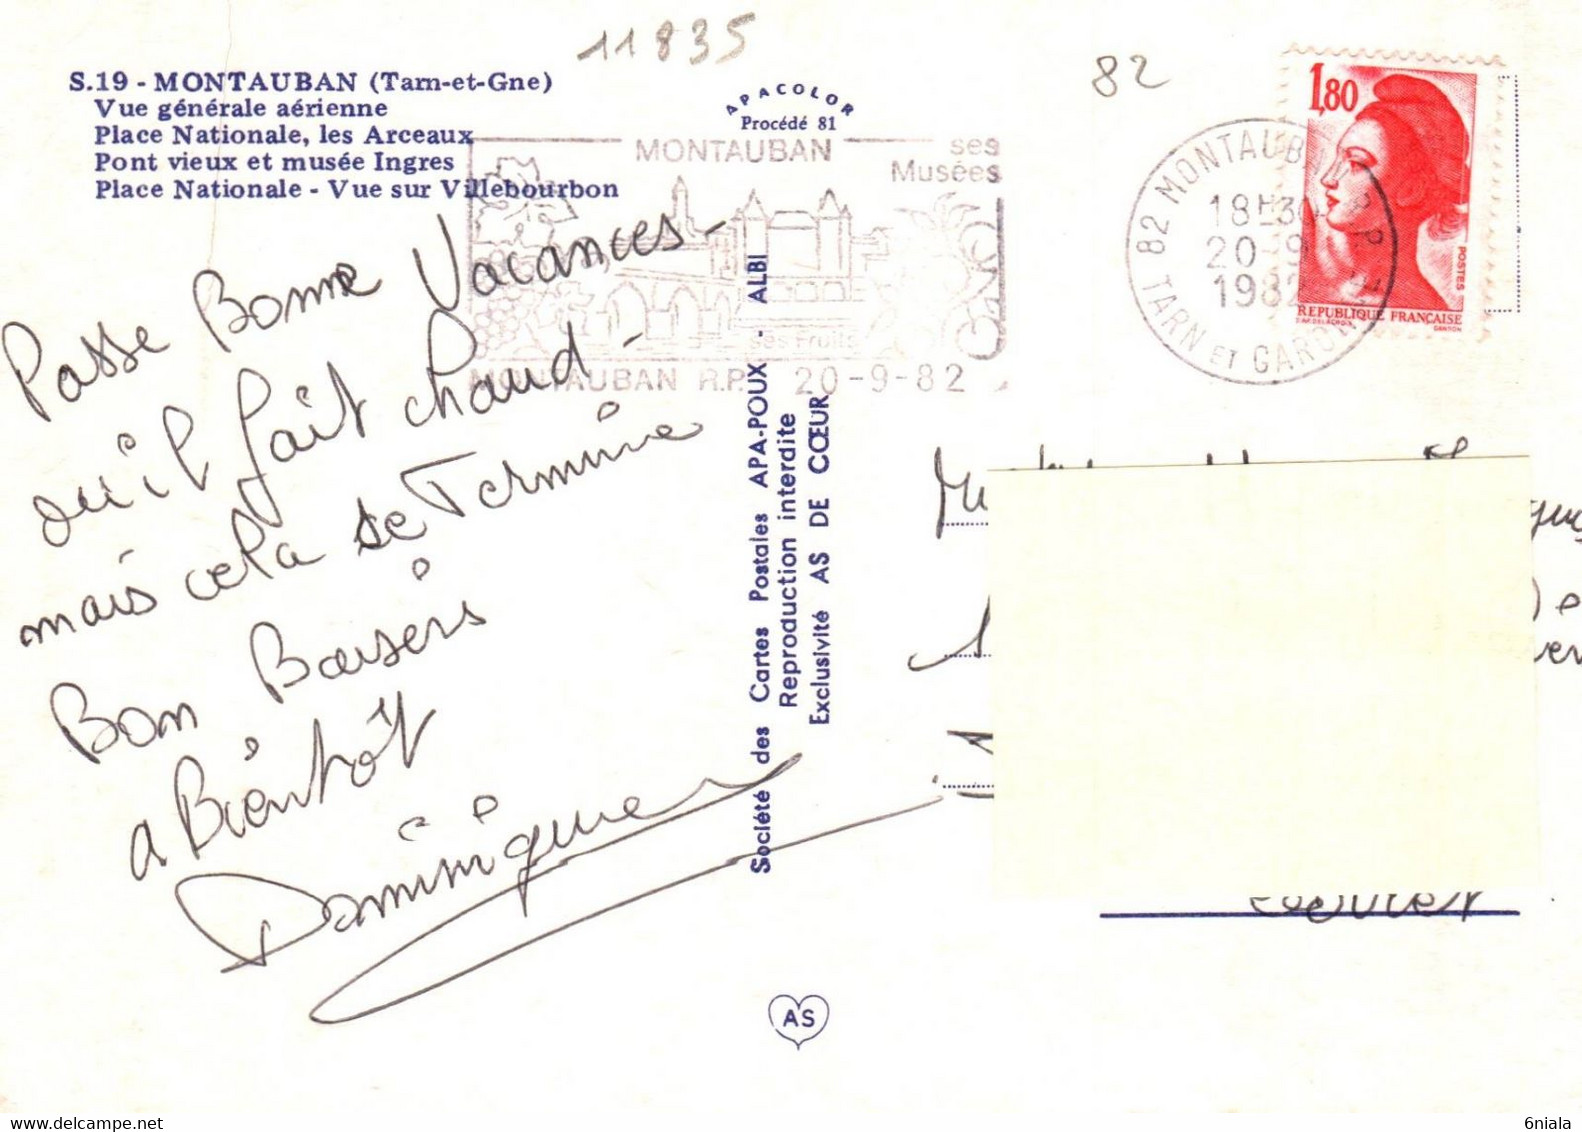 11835
82
S.19 - MONTAUBAN (Tarn-et-Gne)
Vue générale aérienne
Place Nationale, les Arceaux
Pont vieux et musée Ingres
Place Nationale - Vue sur Villebourbon
APACOLOR
Procédé 81
MONTAUBAN
ses
Musées
ses Fruits
MONTAUBAN R.P. 20-9-82
82 MONTAUBAN R.P.
18H30
20-9
1982
TARN ET GARONNE
1,80
POSTES
REPUBLIQUE FRANÇAISE
D'AP. DELACROIX
GANDON
Passe Bonne Vacances -
qu'il fait chaud -
mais cela se Termine
Bon Baisers
a Bientôt
Dominique
Société des Cartes Postales APA-POUX - ALBI
Reproduction interdite
Exclusivité AS DE CŒUR
AS
6niala